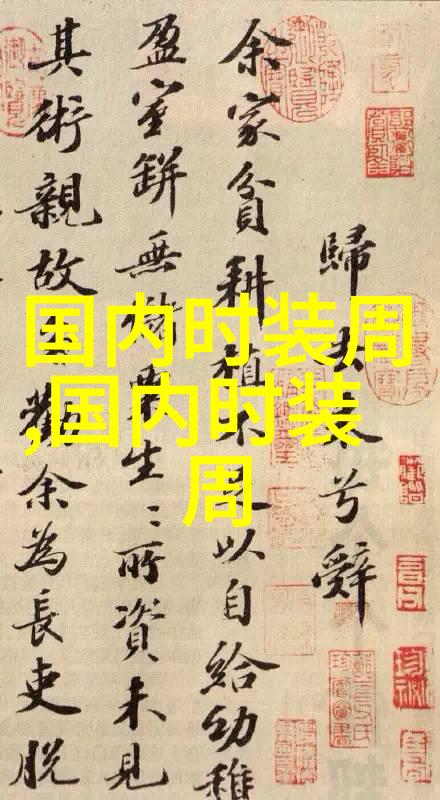 国内时装周
,国内时装
周
歸去来兮辭
余家貧耕植不足以自給幼稚
盈室缾無儲粟生〻所資未見
其術親故多勸余為長吏脱